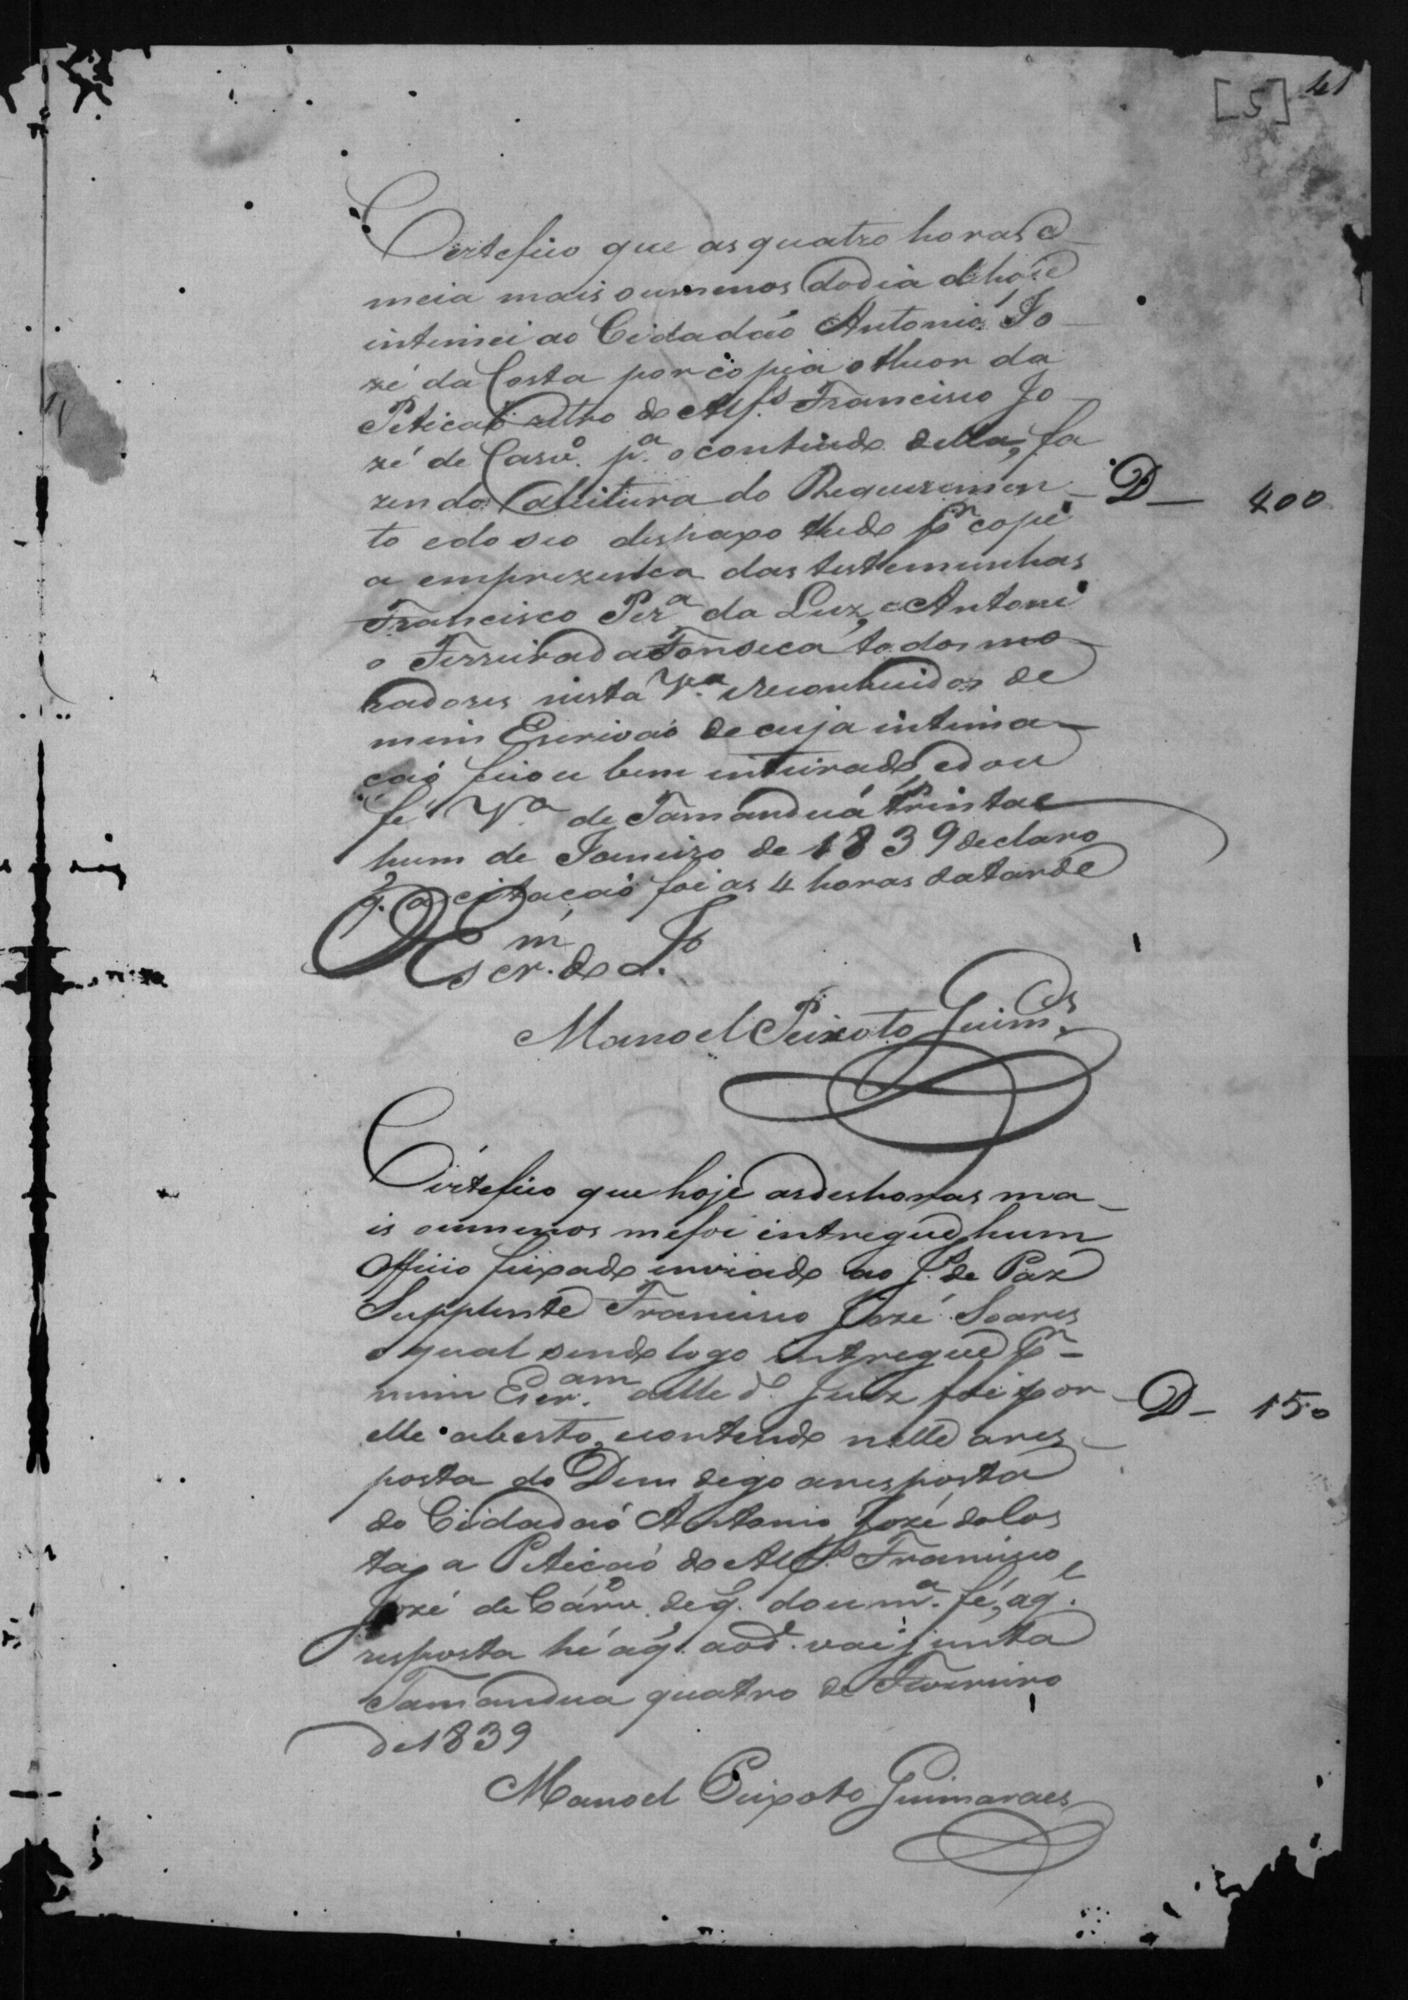 [5] 41
Certefico que as quatro horas e
meia mais oumenos dodia dehoje
intimei ao Cidadaõ Antonio Jo
zé da Costa por copia otheor da
Peticaõ retro do Alfs. Francisco Jo
zé de Carvo. pa. ocontiudo della, fa
zendo aleitura do Requerimen D— 400
to edo seo despaxo tudo pr copi
a emprezenca das testemunhas
Francisco Pera. da Luz, e Antoni
o Ferreira da Fonseca todos mo
radores nesta Va. ereconhecidos de
mim Escrivaõ de cuja intima
caõ ficou bem inteirado edou
fé Va. de Tamanduá trinta e
hum de Janeiro de 1839 declaro
q. a citacaõ foi as 4 horas datarde
O Escrm. do
Manoel Peixoto Guimes.
Certefico que hoje asdeshoras ma
is oumenos mefoi intregue hum
Officio feixado inviado ao J. de Paz
Supplente Francisco Jozé Soares
oqual sendo logo intregue pr
mim Escram. aelle do. Juiz foi por D— 150
elle aberto, econtendo nelle ares
posta do Dem digo aresposta
do Cidadaõ Antonio Jozé daCos
ta, a Peticaõ do Alfs. Francisco
Jozé de Carvo. de q. dou ma. fé, aql.
resposta hé aq. aod. vai junta
Tamandua quatro de Fevereiro
de 1839
Manoel Peixoto Guimaraes